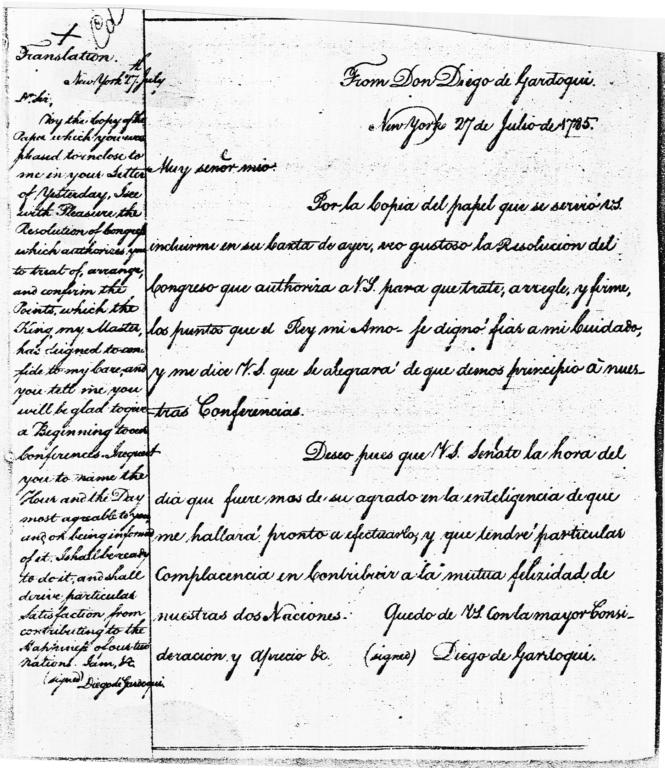 Translation.
New York 27th July
Sir,
By the Copy of the
Paper which you were
pleased to inclose to
me in your Letter
of Yesterday, I see
with Pleasure the
Resolution of Congress
which authorizes you
to treat of, arrange,
and confirm the
Points, which the
King my Master,
has deigned to con
fide to my Care, and
you tell me, you
will be glad to give
a Beginning to our
Conferences. I request
you to name the
Hour and the Day
most agreeable to you
and on being informed
of it. I shall be ready
to do it, and shall
derive particular
Satisfaction from
contributing to the
Happiness of our two
Nations. I am, &c
(signed) Diego de Gardoqui.
From Don Diego de Gardoqui.
New York 27 de Julio de 1785.
Muy señor mio.
Por la Copia del papel que se servió V.S.
incluirme en su Carta de ayer, veo gustoso la Resolucion del
Congreso que authoriza a V.S. para que trate, arregle, y firme,
los puntos que el Rey mi Amo se dignó fiar a mi Cuidado,
y me dice V.S. que se alegrará de que demos principio à nues-
tras Conferencias.
Deseo pues que V.S. Señale la hora del
dia que fuere mas de su agrado en la inteligencia de que
me hallará pronto a efectuarlo, y que tendré particular
Complacencia en Contribuir a la mutua felizidad de
nuestras dos Naciones. Quedo de V.S. Con la mayor Consi-
deración y aprecio &c. (signed) Diego de Gardoqui.